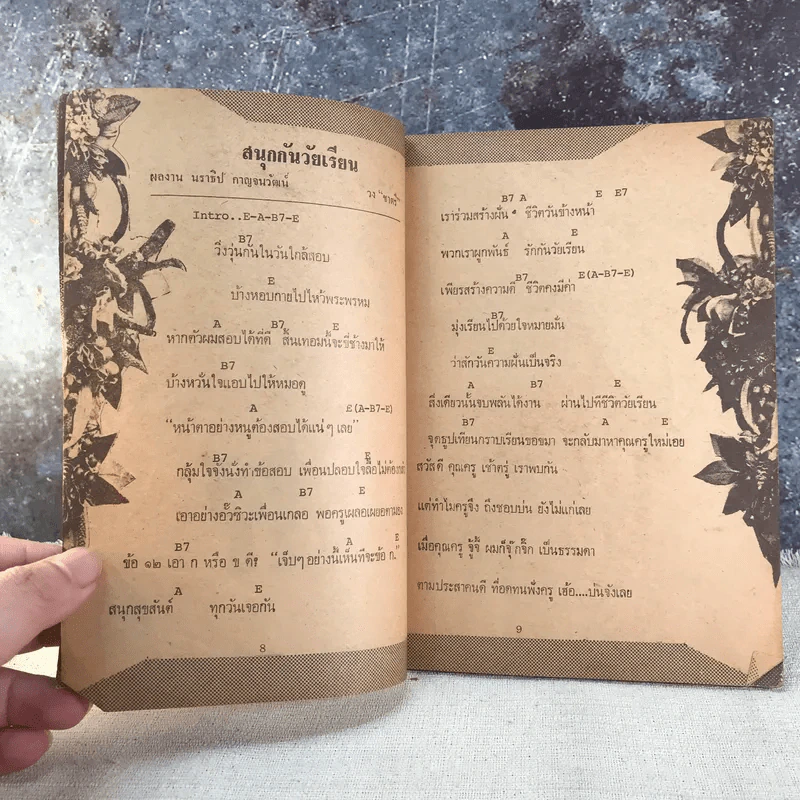 สนุกกันวัยเรียน
ผลงาน นราธิป กาญจนวัฒน์
วง "ชาตรี"
Intro..E-A-B7-E
B7
วิ่งวุ่นกันในวันใกล้สอบ
E
บ้างหอบกายไปไหว้พระพรหม
A B7 E
หากตัวผมสอบได้ที่ดี สิ้นเทอมนี้จะขี่ช้างมาให้
B7
บ้างหวั่นใจแอบไปให้หมอดู
A E(A-B7-E)
"หน้าตาอย่างหนูต้องสอบได้แน่ๆ เลย"
B7 E
กลุ้มใจจังนั่งทำข้อสอบ เพื่อนปลอบใจลื้อไม่ต้อง
A B7 E
เอาอย่างอั๊วซิวะเพื่อนเกลอ พอครูเผลอเผยอตามอง
B7 A E
ข้อ ๑๒ เอา ก หรือ ข ดี? "เจ็บๆ อย่างนี้เห็นทีจะข้อ ก."
A E
สนุกสุขสันต์ ทุกวันเจอกัน
8
B7 A E E7
เราร่วมสร้างฝัน ชีวิตวันข้างหน้า
A E
พวกเราผูกพันธ์ รักกันวัยเรียน
B7 E(A-B7-E)
เพียรสร้างความดี ชีวิตคงมีค่า
B7
มุ่งเรียนไปด้วยใจหมายมั่น
E
ว่าสักวันความฝันเป็นจริง
A B7 E
สิ่งเดียวนั้นจบพลันได้งาน ผ่านไปทีชีวิตวัยเรียน
B7 A E
จุดธูปเทียนกราบเรียนขอขมา จะกลับมาหาคุณครูใหม่เอย
สวัสดี คุณครู เช้าตรู่ เราพบกัน
แต่ทำไมครูจึง ถึงชอบบ่น ยังไม่แก่เลย
เมื่อคุณครู จู้จี้ ผมก็จุ๊กจิ๊ก เป็นธรรมดา
ตามประสาคนดี ที่อดทนฟังครู เฮ้อ....บ่นจังเลย
9